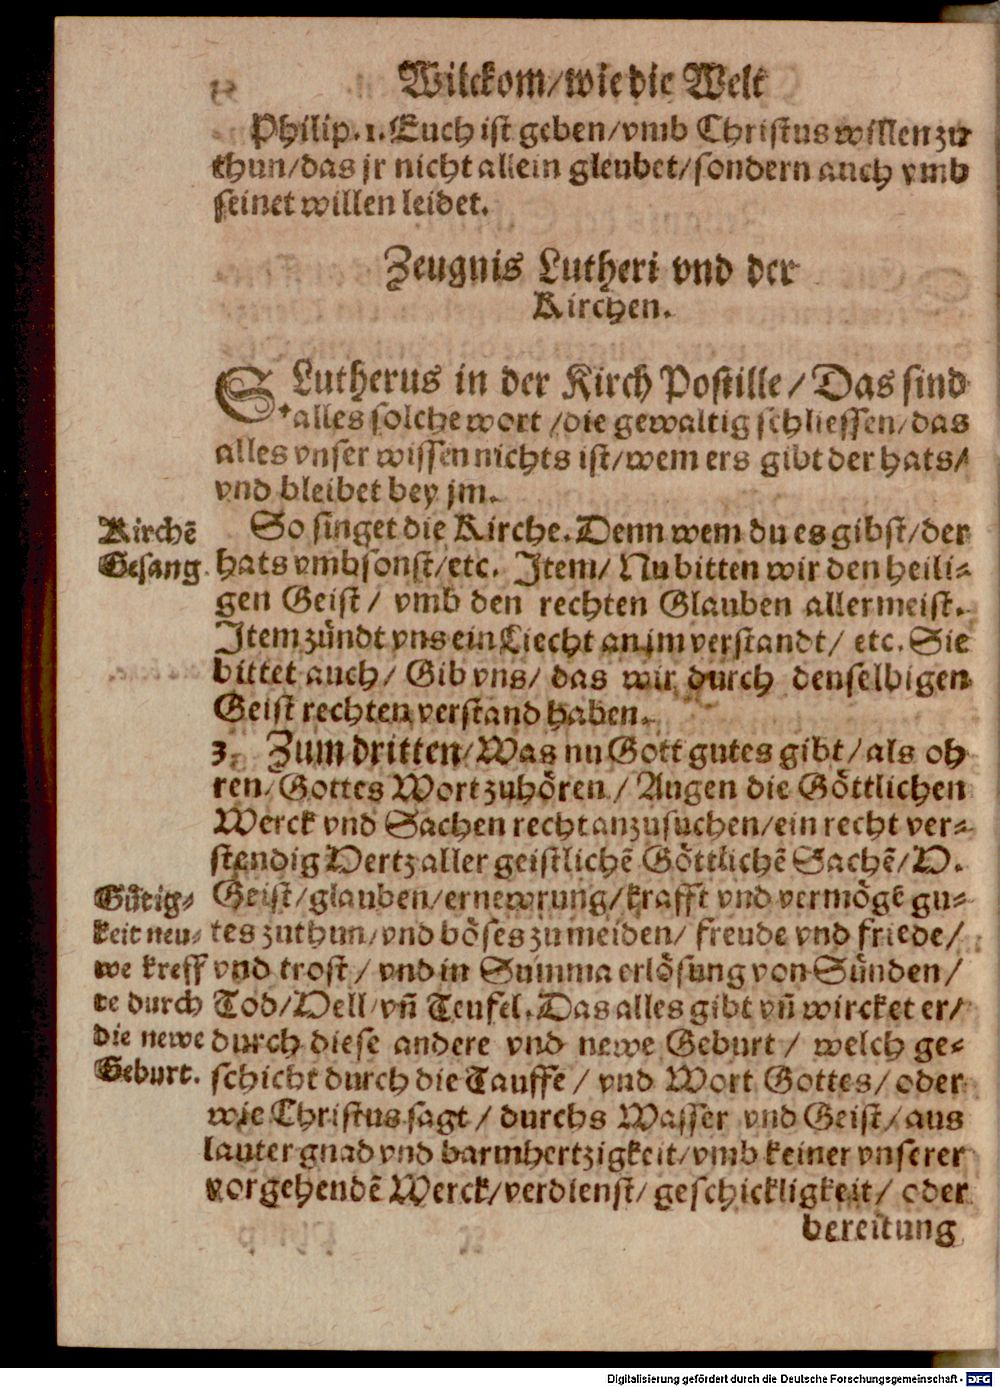 Wilckom/wie die Welt
Philip. 1. Euch ist geben/vmb Christus willen zu
thun/das jr nicht allein gleubet/sondern auch vmb
seinet willen leidet.
Zeugnis Lutheri vnd der
Kirchen.
S. Lutherus in der Kirch Postille/Das sind
alles solche wort/die gewaltig schliessen/das
alles vnser wissen nichts ist/wem ers gibt der hats/
vnd bleibet bey jm.
Kirchẽ
Gesang.
So singet die Kirche. Denn wem du es gibst/der
hats vmbsonst/etc. Item/Nu bitten wir den heili-
gen Geist/vmb den rechten Glauben allermeist.
Item zündt vns ein Liecht an im verstandt/etc. Sie
bittet auch/Gib vns/das wir durch denselbigen
Geist rechten verstand haben.
3. Zum dritten/Was nu Gott gutes gibt/als oh
ren/Gottes Wort zuhören/Augen die Göttlichen
Werck vnd Sachen recht anzusuchen/ein recht ver-
stendig Hertz aller geistlichẽ Göttlichẽ Sachẽ/H.
Gütig-
keit neu-
we kreff
te durch
die newe
Geburt.
Geist/glauben/ernewrung/krafft vnd vermögẽ gu-
tes zuthun/vnd böses zumeiden/freude vnd friede/
vnd trost/vnd in Summa erlösung von Sünden/
Tod/Hell/vñ Teufel. Das alles gibt vñ wircket er/
durch diese andere vnd newe Geburt/welch ge-
schicht durch die Tauffe/vnd Wort Gottes/oder
wie Christus sagt/durchs Wasser vnd Geist/aus
lauter gnad vnd barmhertzigkeit/vmb keiner vnserer
vorgehendẽ Werck/verdienst/geschickligkeit/oder
bereitung
Digitalisierung gefördert durch die Deutsche Forschungsgemeinschaft - DFG